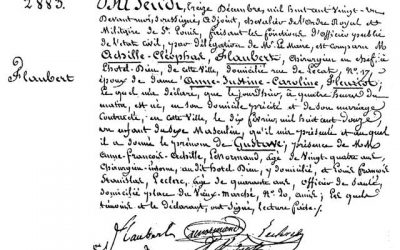 2883.
Du Jeudi, treize Décembre, mil huit cent vingt-un
Devant nous soussigné Adjoint, chevalier de l'Ordre Royal et
Militaire de St. Louis, faisant les fonctions d'officier public
de l'état civil, par délégation de Mr. le Maire, est comparu Mr
Achille-Cléophas Flaubert, Chirurgien en chef à
l'hôtel-Dieu, de cette ville, domicilié rue de Lecat, No. 17,
Flaubert
époux de dame Anne-Justine-Caroline Fleuriot,
Lequel m'a déclaré, que le jour d'hier, à quatre heures du
matin, est né, en son domicile précité et de son mariage
contracté, en cette ville, le dix février mil huit cent douze,
un enfant du sexe Masculin, qu'il m'a présenté et auquel
il a donné le prénom de Gustave; présence de MM
Anne-François-Achille, Lenormand, âgé de Vingt quatre ans,
Chirurgien interne, au dit hôtel Dieu, y domicilié, et Louis François
Stanislas, Leclerc, âgé de quarante ans, officier de santé,
domicilié place du Vieux-Marché, No. 20, amis; lesquels
témoins et le déclarant, ont signé, lecture faite.
flaubert Lenormand Leclerc